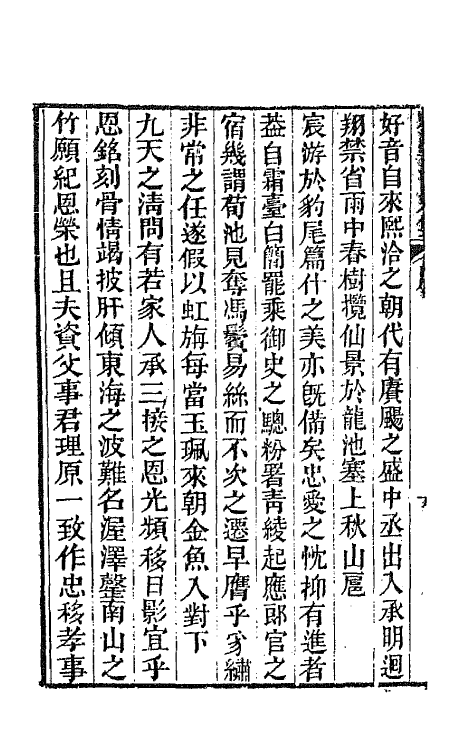 好音自來熙洽之朝代有賡颺之盛中丞出入承明迴
翔禁省雨中春樹攬仙景於龍池塞上秋山扈
宸游於豹尾篇什之美亦旣備矣忠愛之忱抑有進者
葢自霜臺白簡罷乘御史之驄粉署靑綾起應郎官之
宿幾謂荀池見奪馮鬢易絲而不次之遷早膺乎豸繡
非常之任遂假以虹旃每當玉珮來朝金魚入對下
九天之淸問有若家人承三接之恩光頻移日影宜乎
恩銘刻骨情竭披肝傾東海之波難名渥澤罄南山之
竹願紀恩榮也且夫資父事君理原一致作忠移孝事